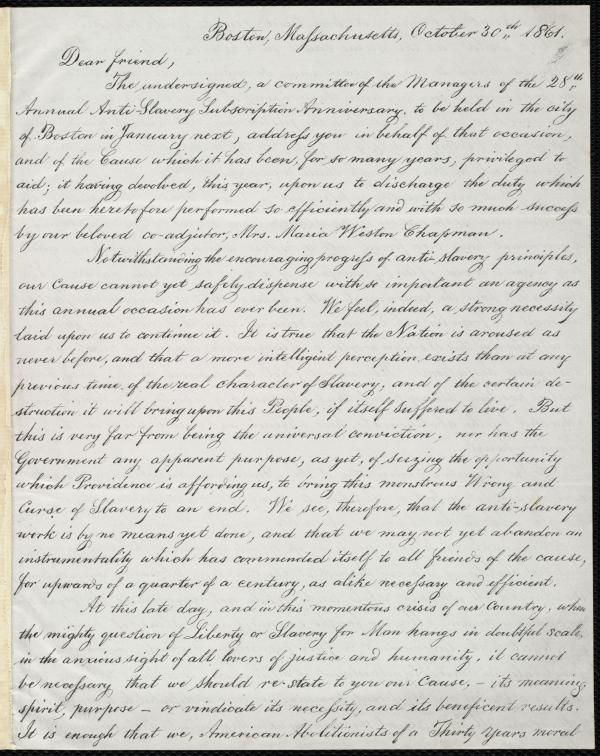 Boston, Massachusetts, October 30th, 1861.
Dear friend,
The undersigned, a committee of the Managers of the 28th
Annual Anti-Slavery Subscription Anniversary, to be held in the city
of Boston in January next, address you in behalf of that occasion,
and of the Cause which it has been, for so many years, privileged to
aid; it having devolved, this year, upon us to discharge the duty which
has been heretofore performed so efficiently and with so much success
by our beloved co-adjutor, Mrs. Maria Weston Chapman.
Notwithstanding the encouraging progress of anti-slavery principles,
our Cause cannot yet safely dispense with so important an agency as
this annual occasion has ever been. We feel, indeed, a strong necessity
laid upon us to continue it. It is true that the Nation is aroused as
never before, and that a more intelligent perception exists than at any
previous time, of the real character of Slavery, and of the certain de-
struction it will bring upon this People, if itself suffered to live. But
this is very far from being the universal conviction, nor has the
Government any apparent purpose, as yet, of seizing the opportunity
which Providence is affording us, to bring this monstrous Wrong and
Curse of Slavery to an end. We see, therefore, that the anti-slavery
work is by no means yet done, and that we may not yet abandon an
instrumentality which has commended itself to all friends of the cause,
for upwards of a quarter of a century, as alike necessary and efficient.
At this late day, and in this momentous crisis of our Country, when
the mighty question of Liberty or Slavery for Man hangs in doubtful scale,
in the anxious sight of all lovers of justice and humanity, it cannot
be necessary that we should re-state to you our Cause, - its meaning,
spirit, purpose - or vindicate its necessity, and its beneficent results.
It is enough that we, American Abolitionists of a Thirty Years moral